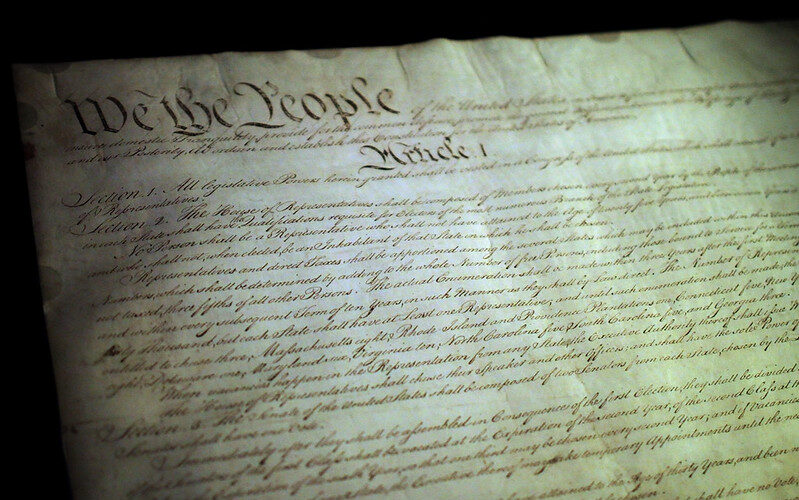 We the People of the United States
insure domestic Tranquility, provide for the common defence, promote
and our Posterity, do ordain and establish this Constitution for the United States of America.
Article 1
Section 1. All legislative Powers herein granted shall be vested in a Congress of the United States, which shall consist of
of Representatives.
Section 2. The House of Representatives shall be composed of Members chosen every second Year by the People of the several
in each State shall have Qualifications requisite for Electors of the most numerous Branch of the State Legislature.
No Person shall be a Representative who shall not have attained to the Age of twenty five Years, and been seven Years a
and who shall not, when elected, be an Inhabitant of that State in which he shall be chosen.
Representatives and direct Taxes shall be apportioned among the several States which may be included within this Union,
Numbers, which shall be determined by adding to the whole Number of free Persons, including those bound to Service for a Term
not taxed, three fifths of all other Persons. The actual Enumeration shall be made within three Years after the first Meeting
and within every subsequent Term of ten Years, in such Manner as they shall by Law direct. The Number of Representatives
thirty Thousand, but each State shall have at Least one Representative; and until such enumeration shall be made, the
entitled to chuse three, Massachusetts eight, Rhode Island and Providence Plantations one, Connecticut five, New York
eight, Delaware one, Maryland six, Virginia ten, North Carolina five, South Carolina five, and Georgia three.
When vacancies happen in the Representation from any State, the Executive Authority thereof shall
The House of Representatives shall chuse their Speaker and other Officers; and shall have the sole Power of
Section 3. The Senate of the United States shall be composed of two Senators from each State, chosen by the
Senator shall have one Vote.
Immediately after they shall be assembled in Consequence of the first Election, they shall be divided
of the Senators of the first Class shall be vacated at the Expiration of the second Year, of the second Class at
Expiration of the sixth Year, so that one third may be chosen every second Year; and if Vacancies
State, the Executive thereof may make temporary Appointments until the next
attained to the Age of thirty Years, and been
shall have no Vote,